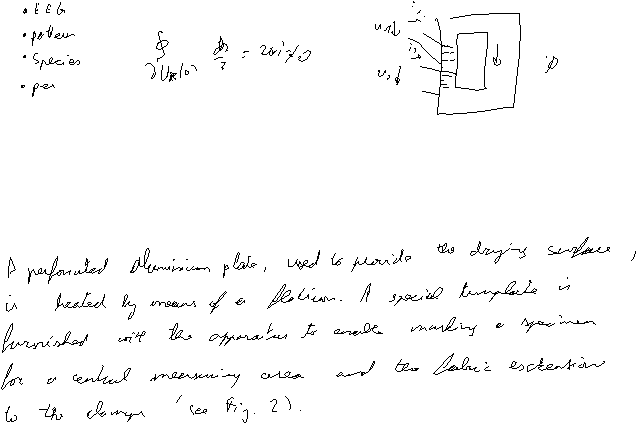 • EEG
• pattern
• Species
• per
∮ ∂U_R(0) dz/z = 2πi ≠ 0
i₁
u₁↓
i₂
u₂↓
φ
A perforated aluminium plate, used to provide the drying surface,
is heated by means of a flatiron. A special template is
furnished with the apparatus to enable marking a specimen
for a central measuring area and the fabric extention
to the clamps (see Fig. 2).